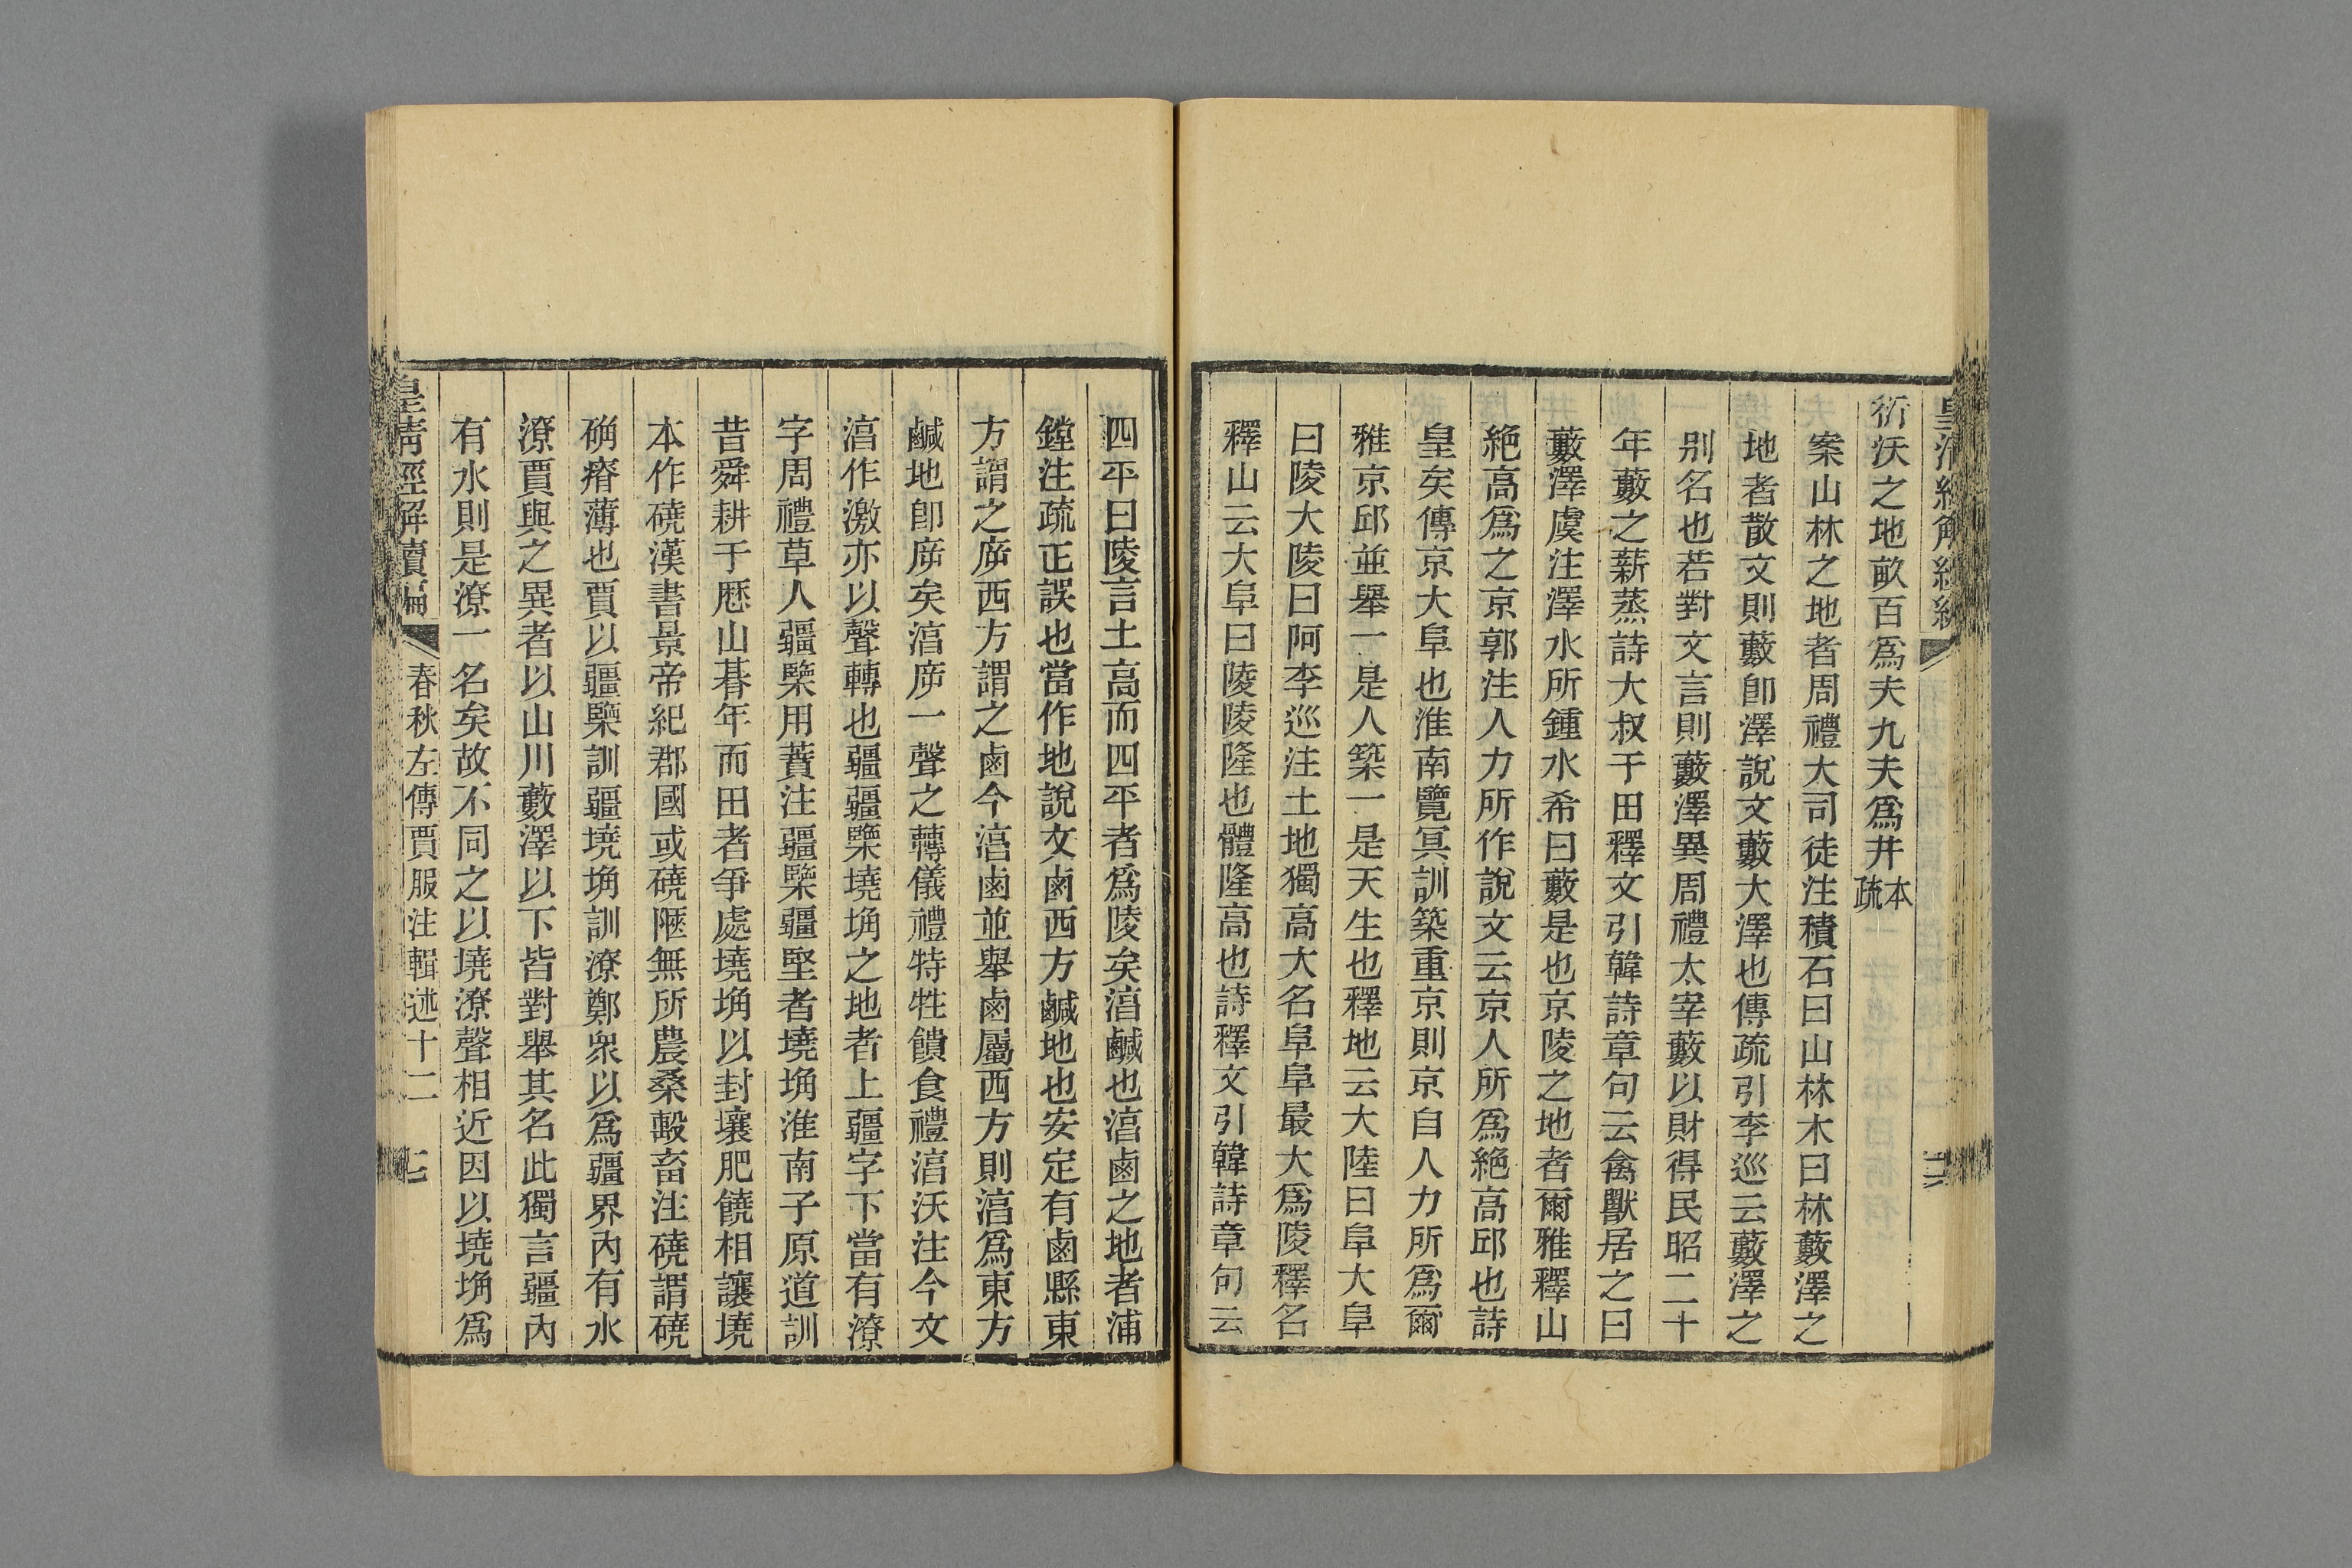 衍沃之地畝百爲夫九夫爲井本疏
案山林之地者周禮大司徒注積石曰山林木曰林藪澤之
地者散文則藪卽澤說文藪大澤也傳疏引李巡云藪澤之
別名也若對文言則藪澤異周禮太宰藪以財得民昭二十
年藪之薪蒸詩大叔于田釋文引韓詩章句云禽獸居之曰
藪澤虞注澤水所鍾水希曰藪是也京陵之地者爾雅釋山
絶高爲之京郭注人力所作說文云京人所爲絶高邱也詩
皇矣傳京大阜也淮南覽冥訓築重京則京自人力所爲爾
雅京邱並舉一是人築一是天生也釋地云大陸曰阜大阜
曰陵大陵曰阿李巡注土地獨高大名阜阜最大爲陵釋名
釋山云大阜曰陵陵隆也體隆高也詩釋文引韓詩章句云
四平曰陵言土高而四平者爲陵矣㵝鹹也㵝鹵之地者浦
鏜注疏正誤也當作地說文鹵西方鹹地也安定有鹵縣東
方謂之㡿西方謂之鹵今㵝鹵並舉鹵屬西方則㵝爲東方
鹹地卽㡿矣㵝㡿一聲之轉儀禮特牲饋食禮㵝沃注今文
㵝作激亦以聲轉也疆疆㯺墝埆之地者上疆字下當有潦
字周禮草人疆㯺用蕡注疆㯺疆堅者墝埆淮南子原道訓
昔舜耕于歷山朞年而田者爭處墝埆以封壤肥饒相讓墝
本作磽漢書景帝紀郡國或磽陿無所農桑毄畜注磽謂磽
确瘠薄也賈以疆㯺訓疆墝埆訓潦鄭衆以爲疆界內有水
潦賈與之異者以山川藪澤以下皆對舉其名此獨言疆內
有水則是潦一名矣故不同之以墝潦聲相近因以墝埆爲
皇清經解續編 春秋左傳賈服注輯述十二 七